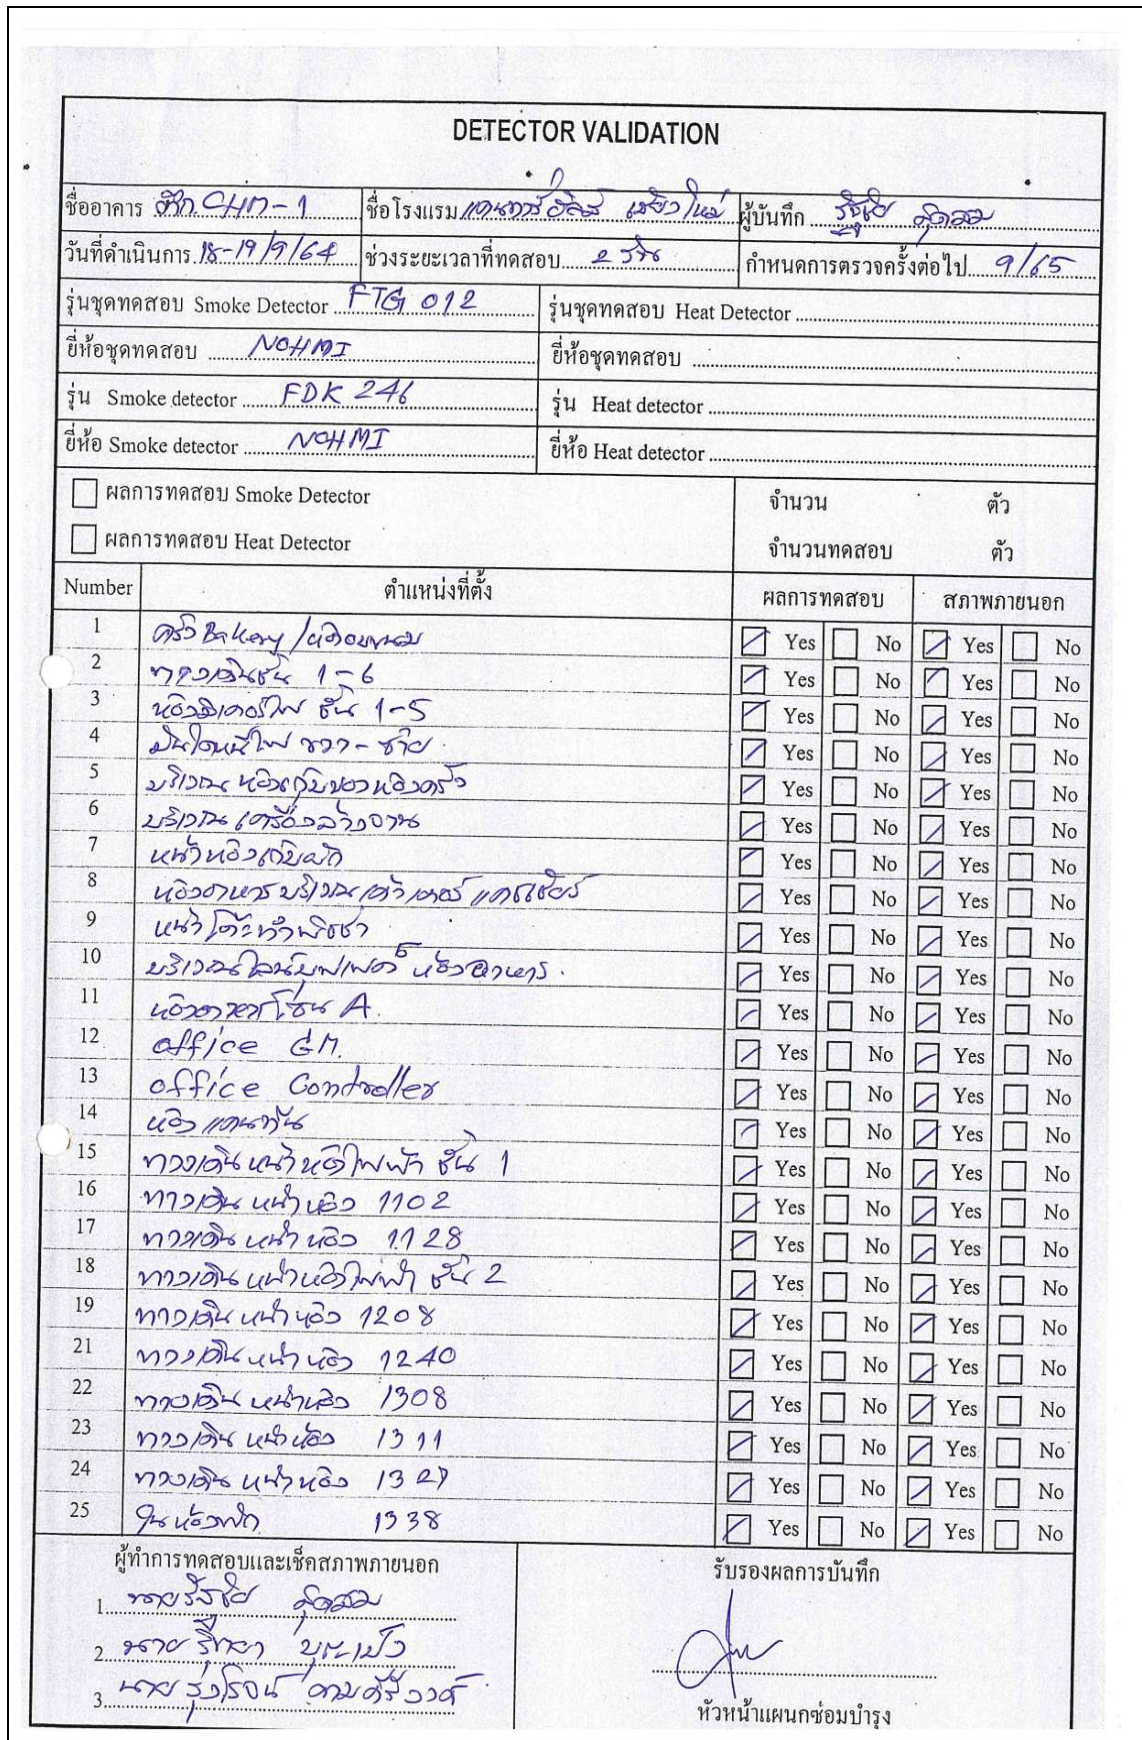 DETECTOR VALIDATION
ชื่ออาคาร ตึก CHM-1 ชื่อโรงแรม แคนทารี ฮิลส์ เชียงใหม่ ผู้บันทึก รัชชัย สุดสม
วันที่ดำเนินการ 18-19/9/64 ช่วงระยะเวลาที่ทดสอบ 2 วัน กำหนดการตรวจครั้งต่อไป 9/65
รุ่นชุดทดสอบ Smoke Detector FTG 012 รุ่นชุดทดสอบ Heat Detector
ยี่ห้อชุดทดสอบ NOHMI ยี่ห้อชุดทดสอบ
รุ่น Smoke detector FDK 246 รุ่น Heat detector
ยี่ห้อ Smoke detector NOHMI ยี่ห้อ Heat detector
ผลการทดสอบ Smoke Detector จำนวน ตัว
ผลการทดสอบ Heat Detector จำนวนทดสอบ ตัว
Number ตำแหน่งที่ตั้ง ผลการทดสอบ สภาพภายนอก
1 ครัว Bakery / Yes No Yes No
2 ทางเดินชั้น 1-6 Yes No Yes No
3 ห้องมิเตอร์ไฟ ชั้น 1-5 Yes No Yes No
4 บันไดหนีไฟ ขวา-ซ้าย Yes No Yes No
5 บริเวณ ห้องเก็บของห้องครัว Yes No Yes No
6 บริเวณ เครื่องล้างจาน Yes No Yes No
7 หน้าห้องเก็บผัก Yes No Yes No
8 ห้องอาหาร บริเวณ เค้าเตอร์ แคชเชียร์ Yes No Yes No
9 หน้าโต๊ะทำพิซซ่า Yes No Yes No
10 บริเวณไลน์บุฟเฟต์ ห้องอาหาร Yes No Yes No
11 ห้องอาหารโซน A. Yes No Yes No
12 office GM. Yes No Yes No
13 office Controller Yes No Yes No
14 ห้อง แคนทีน Yes No Yes No
15 ทางเดิน หน้าห้องไฟฟ้า ชั้น 1 Yes No Yes No
16 ทางเดิน หน้าห้อง 1102 Yes No Yes No
17 ทางเดิน หน้าห้อง 1128 Yes No Yes No
18 ทางเดิน หน้าห้องไฟฟ้า ชั้น 2 Yes No Yes No
19 ทางเดิน หน้าห้อง 1208 Yes No Yes No
21 ทางเดิน หน้าห้อง 1240 Yes No Yes No
22 ทางเดิน หน้าห้อง 1308 Yes No Yes No
23 ทางเดิน หน้าห้อง 1311 Yes No Yes No
24 ทางเดิน หน้าห้อง 1327 Yes No Yes No
25 ในห้องพัก 1338 Yes No Yes No
ผู้ทำการทดสอบและเช็คสภาพภายนอก รับรองผลการบันทึก
1. นายรัชชัย สุดสม
2. นาย
3. นาย รุ่งโรจน์
หัวหน้าแผนกซ่อมบำรุง